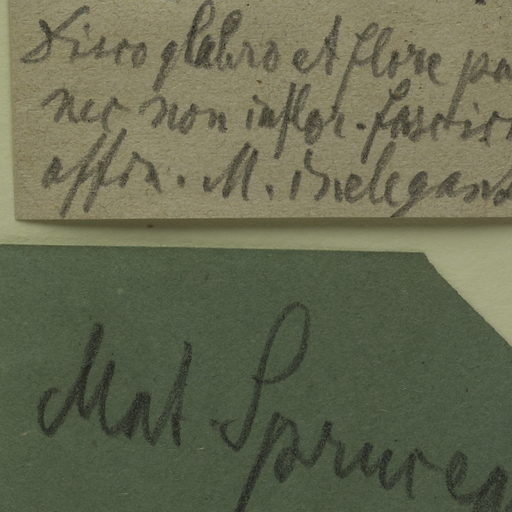 Disco glabro et flore pa
nec non inflor. fascic
affin. M. inelegans
Mat. Sprucea